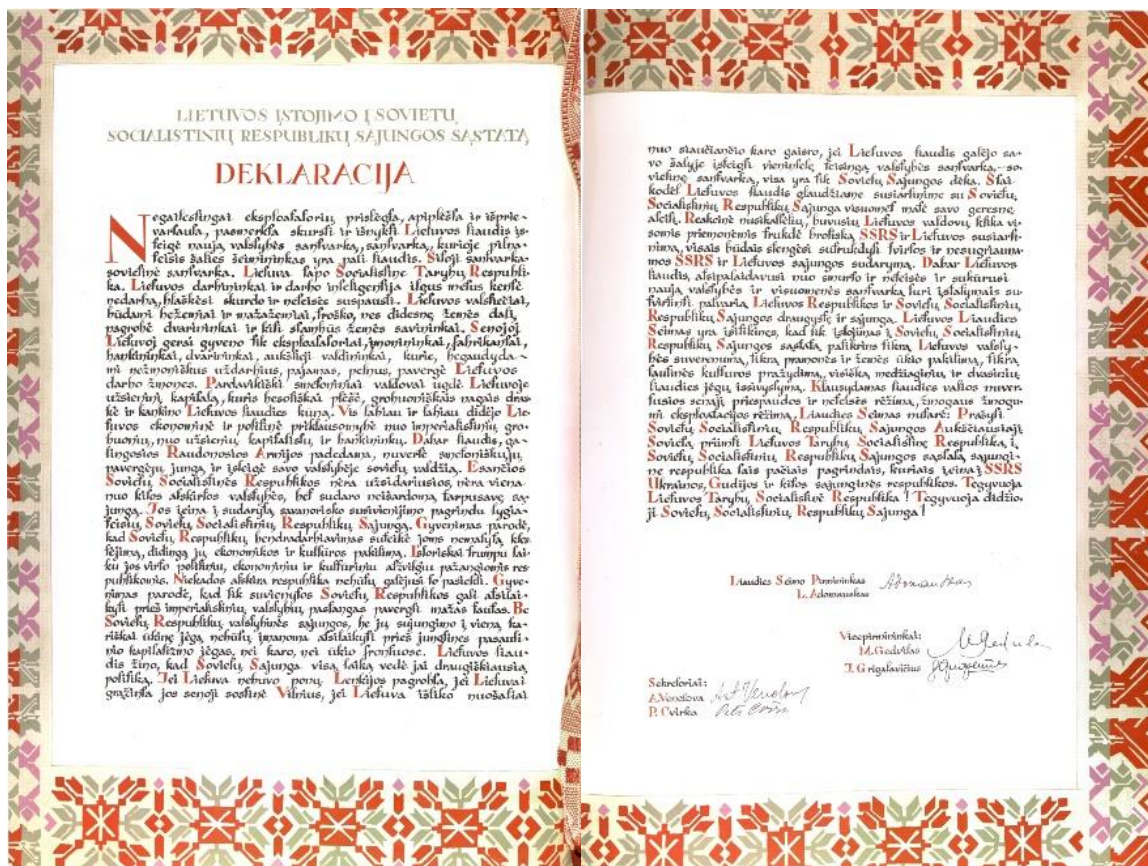 LIETUVOS ĮSTOJIMO Į SOVIETŲ
SOCIALISTINIŲ RESPUBLIKŲ SĄJUNGOS SĄSTATĄ
DEKLARACIJA
Negailestingai eksploatatorių prislėgta, apiplėšta ir išprie-
vartauta, pasmerkta skursti ir išnykti Lietuvos liaudis įs-
teigė naują valstybės santvarką, santvarką, kurioje pilna-
teisis šalies šeimininkas yra pati liaudis. Šitoji santvarka-
sovietinė santvarka. Lietuva tapo Socialistine Tarybų Respubli-
ka. Lietuvos darbininkai ir darbo inteligentija ilgus metus kentė
nedarbą, blaškėsi skurdo ir neteisės suspausti. Lietuvos valstiečiai,
būdami bežemiai ir mažažemiai, troško, nes didesnę žemės dalį,
pagrobė dvarininkai ir kiti stambūs žemės savininkai. Senojoj
Lietuvoj gerai gyveno tik eksploatatoriai, įmonininkai, fabrikantai,
bankininkai, dvarininkai, aukštieji valdininkai, kurie, begaudyda-
mi nežmoniškus uždarbius, pajamas, pelnus, pavergė Lietuvos
darbo žmones. Pardavikiški smetoniniai valdovai ugdė Lietuvoje
užsieninį kapitalą, kuris besotiškai plėšė, grobuoniškais nagais dras-
kė ir kankino Lietuvos liaudies kūną. Vis labiau ir labiau didėjo Lie-
tuvos ekonominė ir politinė priklausomybė nuo imperialistinių gro-
buonių, nuo užsienių kapitalistų ir bankininkų. Dabar liaudis, ga-
lingosios Raudonosios Armijos padedama, nuvertė smetoniškųjų
pavergėjų jungą ir įsteigė savo valstybėje sovietų valdžią. Esančios
Sovietų Socialistinės Respublikos nėra užsidariusios, nėra viena
nuo kitos atskirtos valstybės, bet sudaro neišardomą tarpusavę są-
jungą. Jos įeina į sudarytą savanorisko susivienijimo pagrindu lygia-
teisių Sovietų Socialistinių Respublikų Sąjungą. Gyvenimas parodė,
kad Sovietų Respublikų bendradarbiavimas suteikė joms nematytą klės-
tėjimą, didingą jų ekonomikos ir kultūros pakilimą. Istoriškai trumpu lai-
ku jos virto politiniu, ekonominiu ir kultūriniu atžvilgiu pažangiomis res-
publikomis. Niekados atskira respublika nebūtų galėjusi to pasiekti. Gyve-
nimas parodė, kad tik suvienytos Sovietų Respublikos gali atsilai-
kyti prieš imperialistinių valstybių pastangas pavergti mažas tautas. Be
Sovietų Respublikų valstybinės sąjungos, be jų sujungimo į vieną ka-
riškai ūkinę jėgą nebūtų įmanoma atsilaikyti prieš jungtines pasauli-
nio kapitalizmo jėgas, nei karo, nei ūkio frontuose. Lietuvos liau-
dis žino, kad Sovietų Sąjunga visą laiką vedė jai draugiškiausią
politiką. Jei Lietuva nebuvo ponų Lenkijos pagrobta, jei Lietuvai
grąžinta jos senoji sostinė Vilnius, jei Lietuva išliko nuošaliai
nuo siaučiančio karo gaisro, jei Lietuvos liaudis galėjo sa-
vo šalyje įsteigti vienintelę teisingą valstybės santvarką,-so-
vietinę santvarką, visa yra tik Sovietų Sąjungos dėka. Štai
kodėl Lietuvos liaudis glaudžiame susiartinime su Sovietų
Socialistinių Respublikų Sąjunga visuomet matė savo geresnę
ateitį. Reakcinė nusikaltėlių, buvusių Lietuvos valdovų, klika vi-
somis priemonėmis trukdė brolišką SSRS ir Lietuvos susiarti-
nimą, visais būdais stengėsi sutrukdyti tvirtos ir nesugriauna-
mos SSRS ir Lietuvos sąjungos sudarymą. Dabar Lietuvos
liaudis, atsipalaidavusi nuo smurto ir neteisės ir sukūrusi
naują valstybės ir visuomenės santvarką turi įstatymais su-
tvirtinti patvarią Lietuvos Respublikos ir Sovietų Socialistinių
Respublikų Sąjungos draugystę ir sąjungą. Lietuvos Liaudies
Seimas yra įsitikinęs, kad tik įstojimas į Sovietų Socialistinių
Respublikų Sąjungos sąstatą patikrins tikrą Lietuvos valsty-
bės suverenumą, tikrą pramonės ir žemės ūkio pakilimą, tikrą
tautinės kultūros pražydimą, visišką medžiaginių ir dvasinių
liaudies jėgų issivystymą. Klausydamas liaudies valios nuver-
tusios senąjį priespaudos ir neteisės rėžimą, žmogaus žmogu-
mi eksploatacijos rėžimą, Liaudies Seimas nutarė: Prašyti
Sovietų Socialistinių Respublikų Sąjungos Aukščiausiąjį
Sovietą priimti Lietuvos Tarybų Socialistinę Respubliką į
Sovietų Socialistinių Respublikų Sąjungos sąstatą sąjungi-
ne respublika tais pačiais pagrindais, kuriais įeina į SSRS
Ukrainos, Gudijos ir kitos sąjunginės respublikos. Tegyvuoja
Lietuvos Tarybų Socialistinė Respublika! Tegyvuoja didžio-
ji Sovietų Socialistinių Respublikų Sąjunga!
Liaudies Seimo Pirmininkas
L. Adomauskas
Vicepirmininkai:
M. Gedvilas
J. Grigalavičius
Sekretoriai:
A. Venclova
P. Cvirka